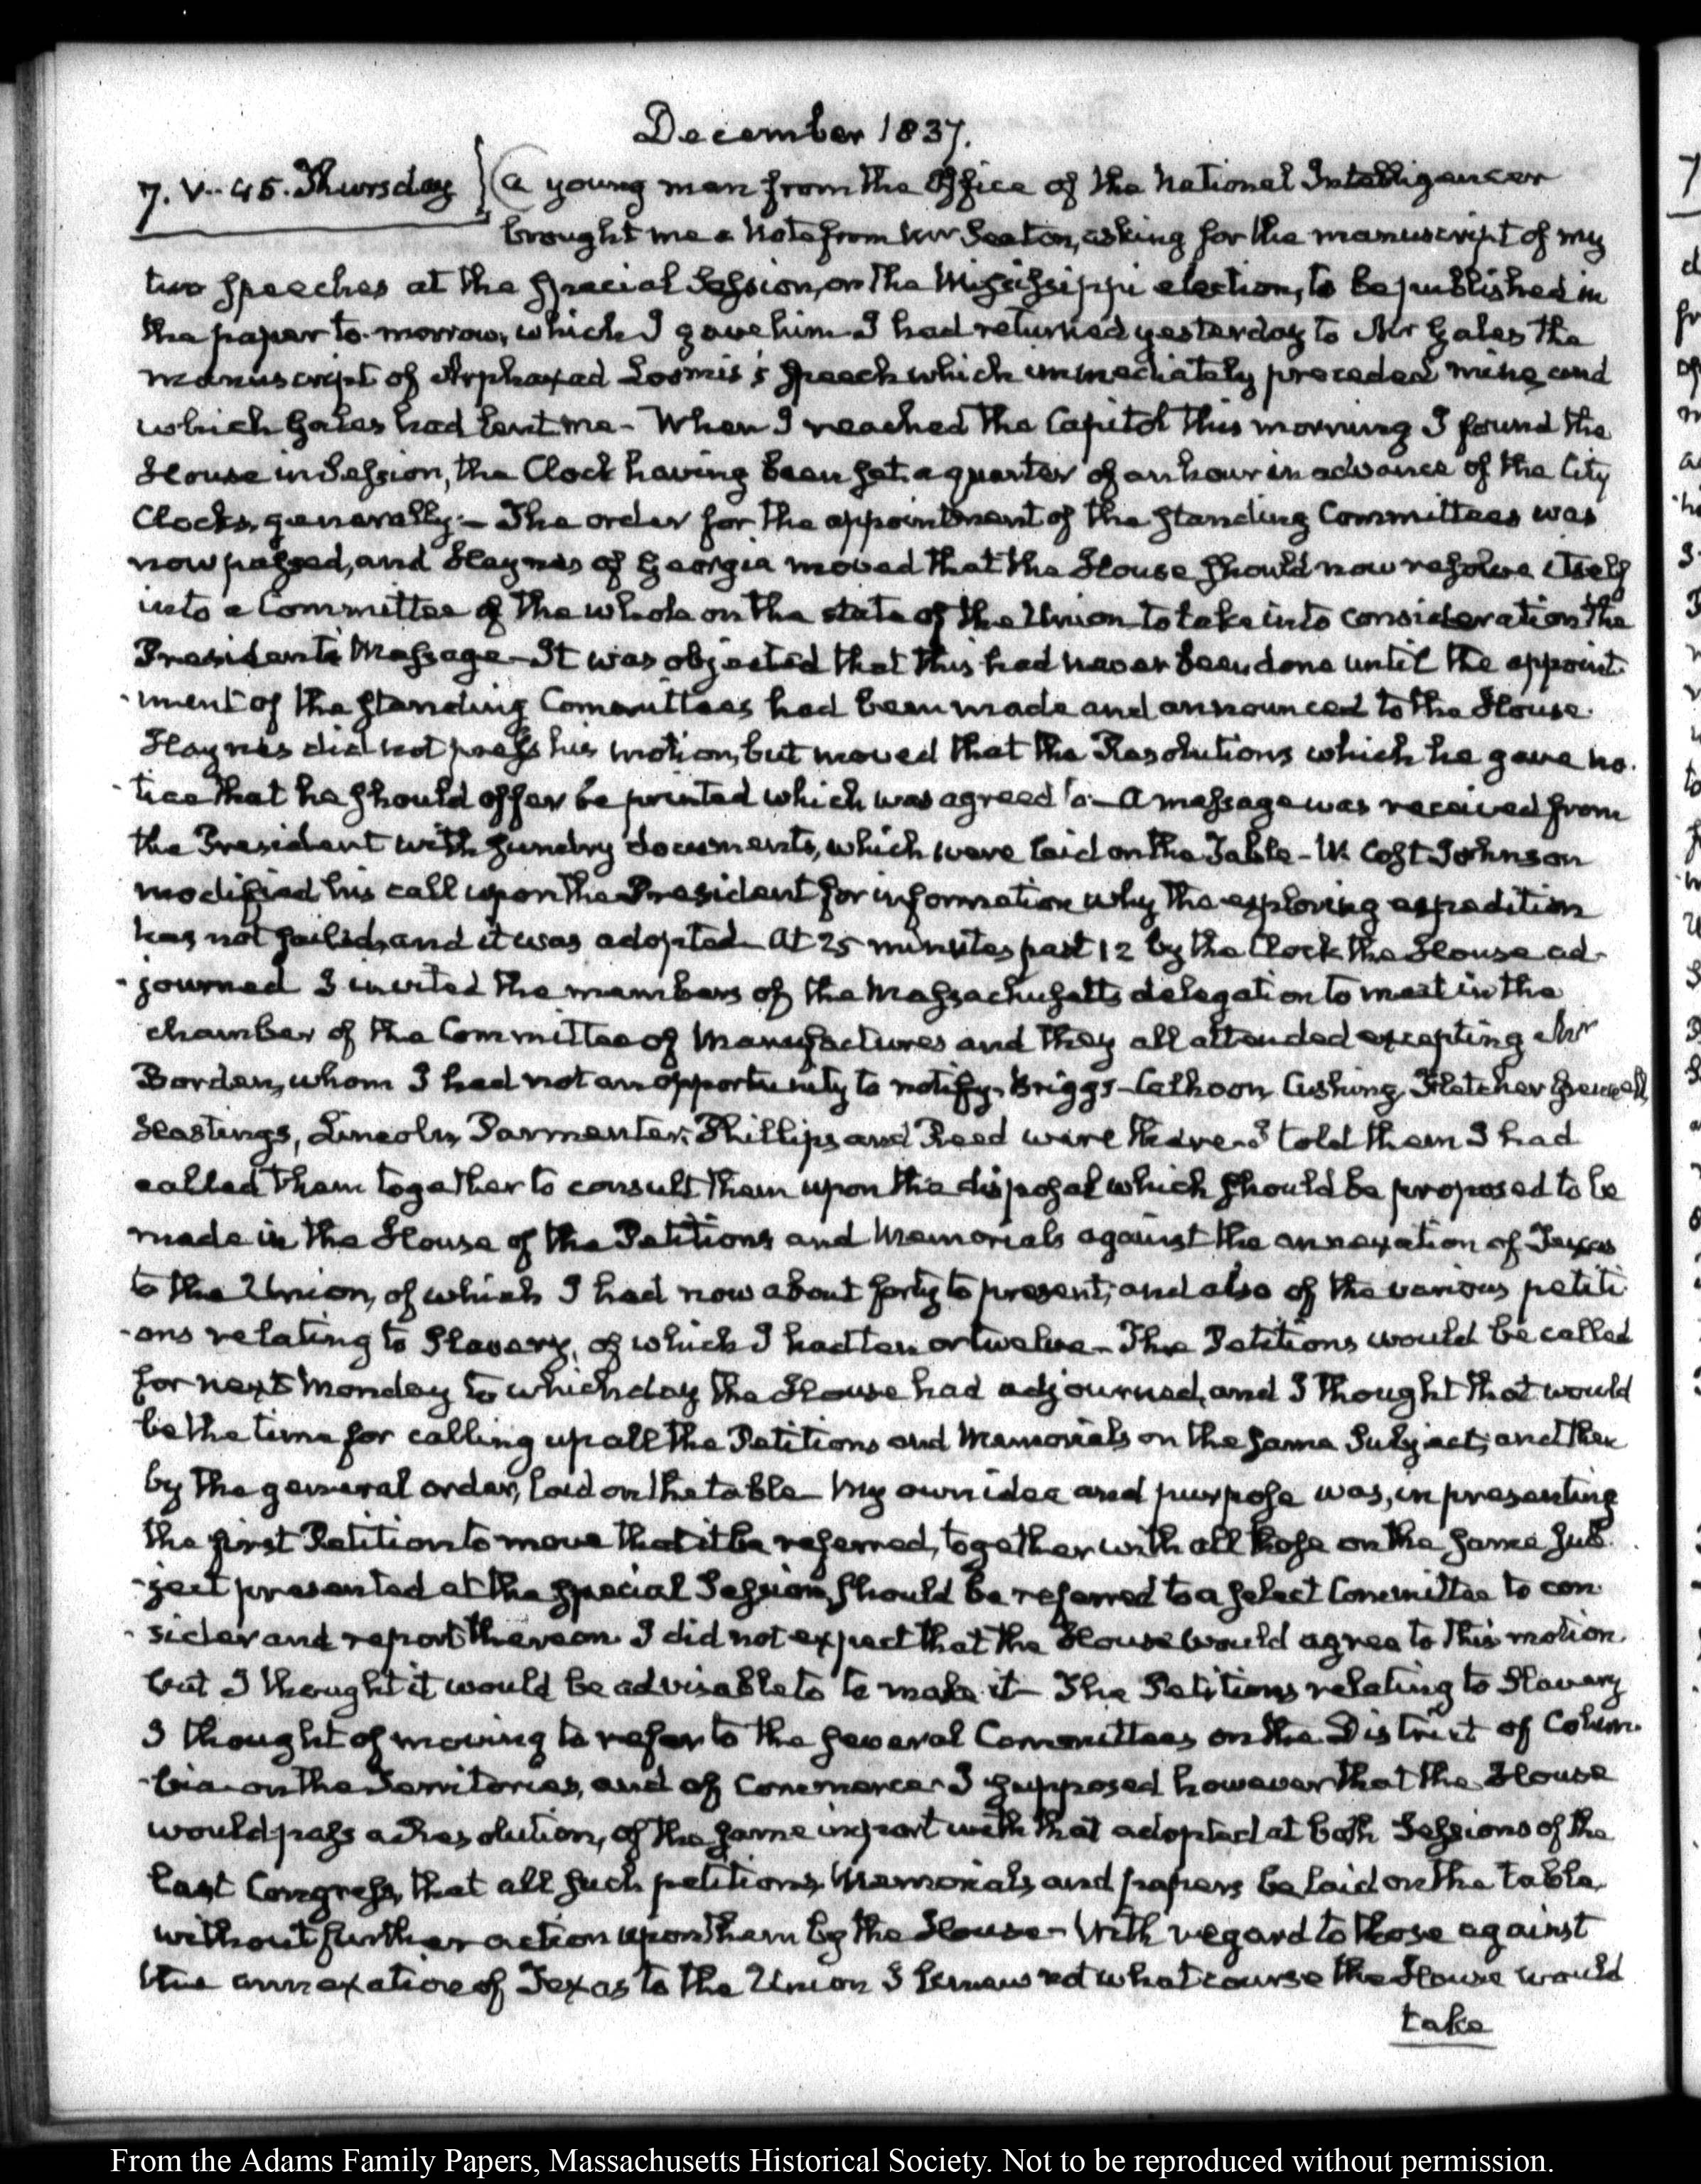 December 1837.
7. V. 45. Thursday } A young man from the Office of the National Intelligencer
brought me a Note from Mr Seaton, asking for the manuscript of my
two speeches at the special Session, on the Mississippi election, to be published in
the paper to-morrow, which I gave him I had returned yesterday to Mr Gales the
manuscript of Arphaxad Loomis's Speech which immediately preceded mine, and
which Gales had lent me - When I reached the Capitol this morning I found the
House in Session, the Clock having been set a quarter of an hour in advance of the City
Clocks, generally - The order for the appointment of the standing Committees was
now passed, and Haynes of Georgia moved that the House should now resolve itself
into a Committee of the whole on the state of the Union to take into consideration the
President's Message - It was objected that this had never been done until the appoint
-ment of the standing Committees had been made and announced to the House.
Haynes did not press his motion, but moved that the Resolutions which he gave no-
-tice that he should offer be printed which was agreed to - A message was received from
the President with sundry documents, which were laid on the Table - W. Cost Johnson
modified his call upon the President for information why the exploring expedition
has not sailed, and it was adopted - At 25 minutes past 12 by the Clock the House ad-
-journed I invited the members of the Massachusetts delegation to meet in the
chamber of the Committee of Manufactures and they all attended excepting Mr
Borden, whom I had not an opportunity to notify. Briggs - Calhoon, Cushing, Fletcher Grennell,
Hastings, Lincoln, Parmenter, Phillips and Reed were there - I told them I had
called them together to consult them upon the disposal which should be proposed to be
made in the House of the Petitions and Memorials against the annexation of Texas
to the Union, of which I had now about forty to present; and also of the various petiti
-ons relating to Slavery, of which I had ten or twelve - The Petitions would be called
for next Monday to which day the House had adjourned, and I thought that would
be the time for calling up all the Petitions and Memorials on the same Subject, and then
by the general order, laid on the table - My own idea and purpose was, in presenting
the first Petition to move that it be referred, together with all those on the same sub-
-ject presented at the special Session, should be referred to a select Committee to con
-sider and report thereon I did not expect that the House would agree to this motion
but I thought it would be advisable to to make it - The Petitions relating to Slavery
I thought of moving to refer to the several Committees on the District of Colum-
-bia - on the Territories, and of Commerce - I supposed however that the House
would pass a Resolution, of the same import with that adopted at both Sessions of the
last Congress, that all such petitions, Memorials and papers be laid on the table,
without further action upon them by the House - With regard to those against
the annexation of Texas to the Union I knew not what course the House would
take
From the Adams Family Papers, Massachusetts Historical Society. Not to be reproduced without permission.